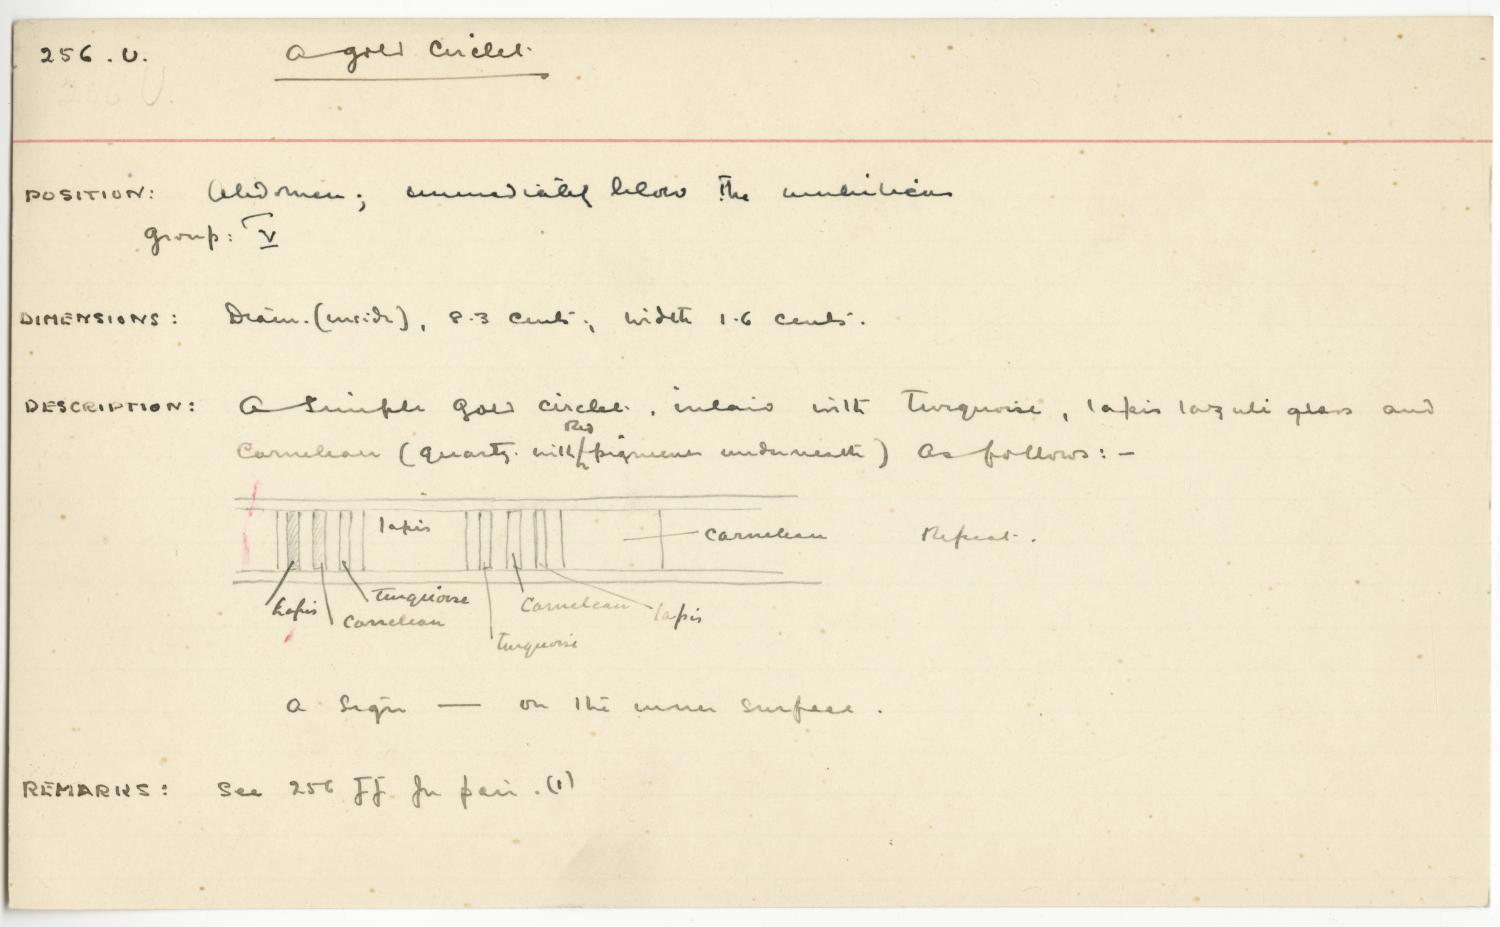 256.U. A gold circlet.
256 U.
POSITION: Abdomen; immediately below the umbilicus
group: V
DIMENSIONS: Diam. (inside), 8.3 cents.; width 1.6 cents.
DESCRIPTION: A simple gold circlet, inlaid with turquoise, lapis lazuli glass and
Red
carnelean (quartz with pigment underneath) as follows:-
lapis
carnelean Repeat.
lapis turquoise carnelean lapis
carnelean
turquoise
A sign — on the inner surface.
REMARKS: See 256 JJ for pair. (1)